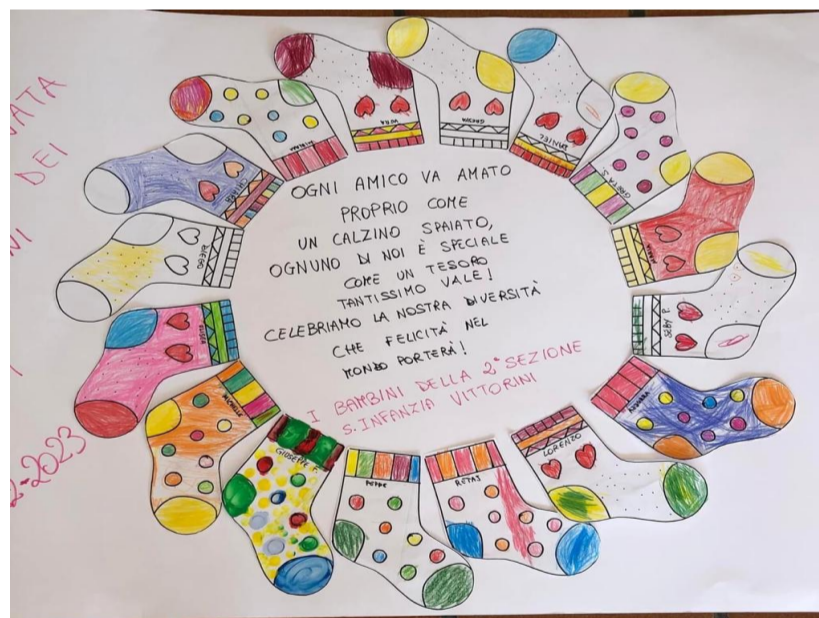 NATA
DEI
NI
2-2023
OGNI AMICO VA AMATO
PROPRIO COME
UN CALZINO SPAIATO,
OGNUNO DI NOI È SPECIALE
COME UN TESORO
TANTISSIMO VALE!
CELEBRIAMO LA NOSTRA DIVERSITÀ
CHE FELICITÀ NEL
MONDO PORTERÀ!
I BAMBINI DELLA 2ª SEZIONE
S. INFANZIA VITTORINI
DANIEL
GRETA S.
DIEGO
MICHELLE
GIUSEPPE F.
RETAJ
LORENZO